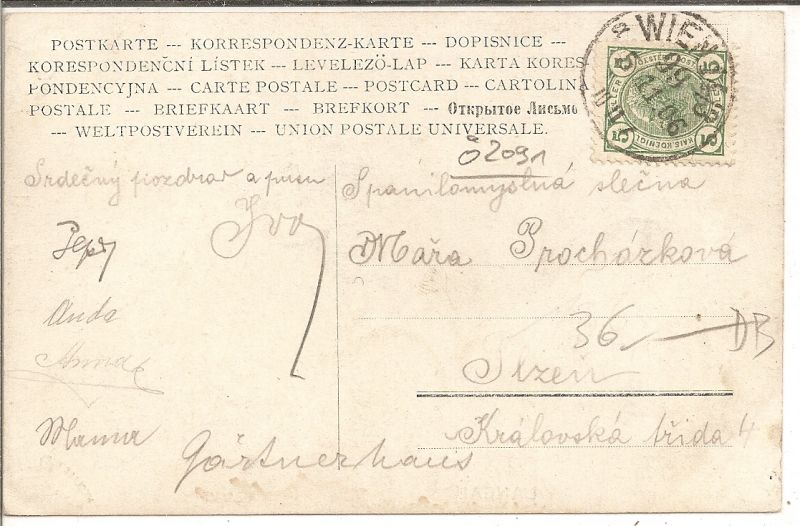 POSTKARTE --- KORRESPONDENZ-KARTE --- DOPISNICE ---
KORESPONDENČNÍ LÍSTEK --- LEVELEZÖ-LAP --- KARTA KORES
PONDENCYJNA --- CARTE POSTALE --- POSTCARD --- CARTOLINA
POSTALE --- BRIEFKAART --- BREFKORT --- Открытое Письмо
--- WELTPOSTVEREIN --- UNION POSTALE UNIVERSALE.
WIEN
Srdečný pozdrav a
Ivo
Pepa
Anda
Mama
Gärtnerhaus
Ö2091
Spanilomyslná slečna
Mářa Procházková
36 — DB
Plzeň
Královská třída 4